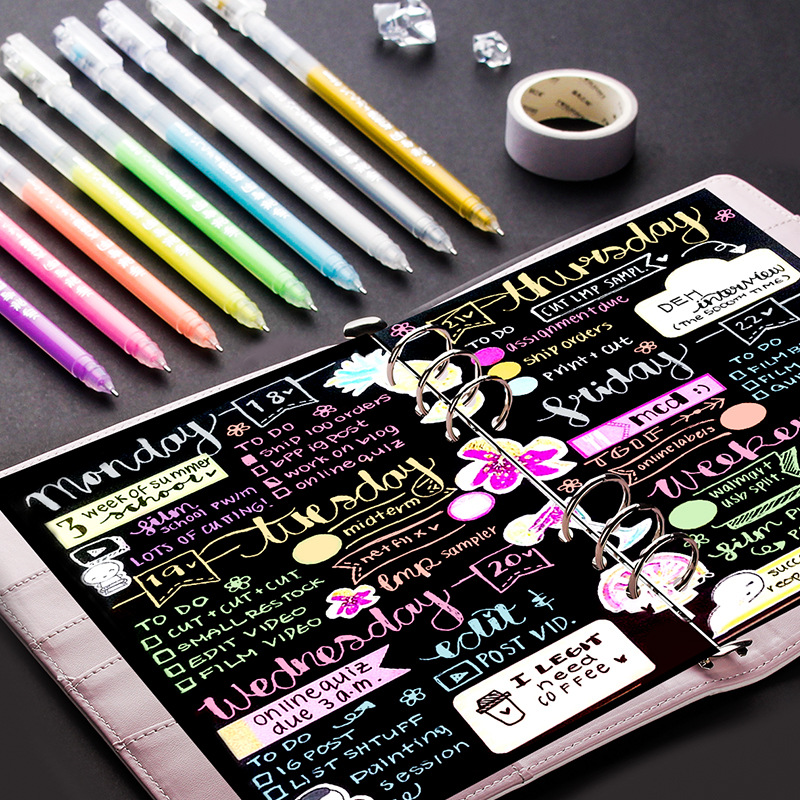 Monday
18
3 week of summer
school
TO DO
ship 100 orders
BFF ig post
work on blog
online quiz
film
school pw/m
LOTS OF CUTTING!
tuesday
19
midterm
netflix
lmp sampler
TO DO
CUT + CUT + CUT
SMALL RESTOCK
EDIT VIDEO
FILM VIDEO
Wednesday
20
online quiz
due 3 a.m.
edit &
POST VID.
TO DO
IG POST
LIST SHTUFF
painting
session
I LEGIT
need
COFFEE
thursday
21
CUT LMP SAMPL
TO DO
assignment due
ship orders
print + cut
DEM interview
(THE 5000TH TIME)
friday
22
mcd :)
TGIF
onlinelabels
TO DO
FILM
FILM
weeke
walmart
film